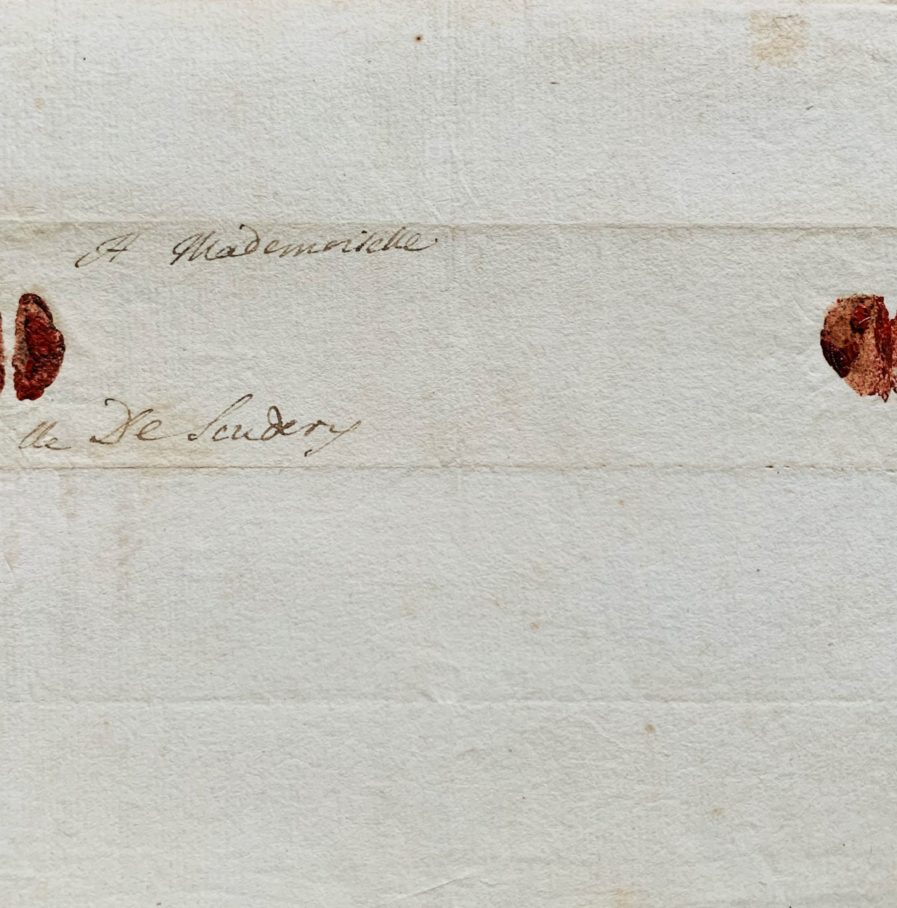 A Mademoiselle
lle De Scudery